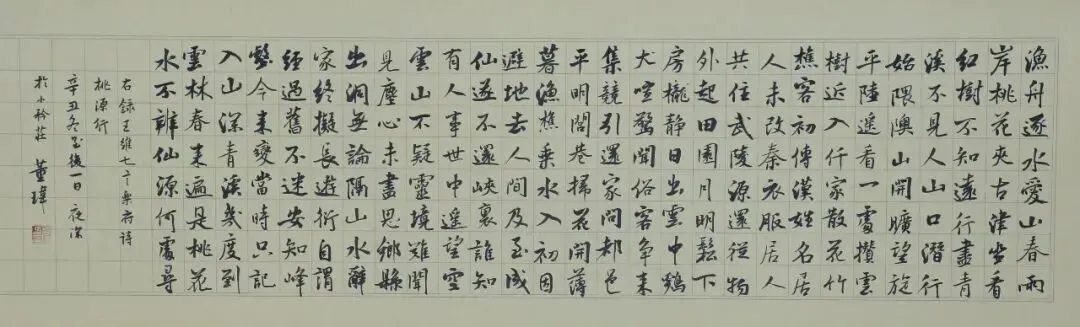 漁舟逐水愛山春兩
岸桃花夾古津坐看
紅樹不知遠行盡青
溪不見人山口潛行
始隈隩山開曠望旋
平陸遙看一處攢雲
樹近入仟家散花竹
樵客初傳漢姓名居
人未改秦衣服居人
共住武陵源還從物
外起田園月明鬆下
房櫳靜日出雲中鷄
犬喧驚聞俗客爭來
集競引還家問都邑
平明閭巷掃花開薄
暮漁樵乘水入初因
避地去人間及至成
仙遂不還峽裏誰知
有人事世中遙望空
雲山不疑靈境難聞
見塵心未盡思鄉縣
出洞無論隔山水辭
家終擬長遊衍自謂
經過舊不迷安知峰
壑今來變當時只記
入山深青溪幾度到
雲林春來遍是桃花
水不辨仙源何處尋
右錄王維七言樂府詩
桃源行
辛丑冬至後一日夜深
於小莊 董瑋